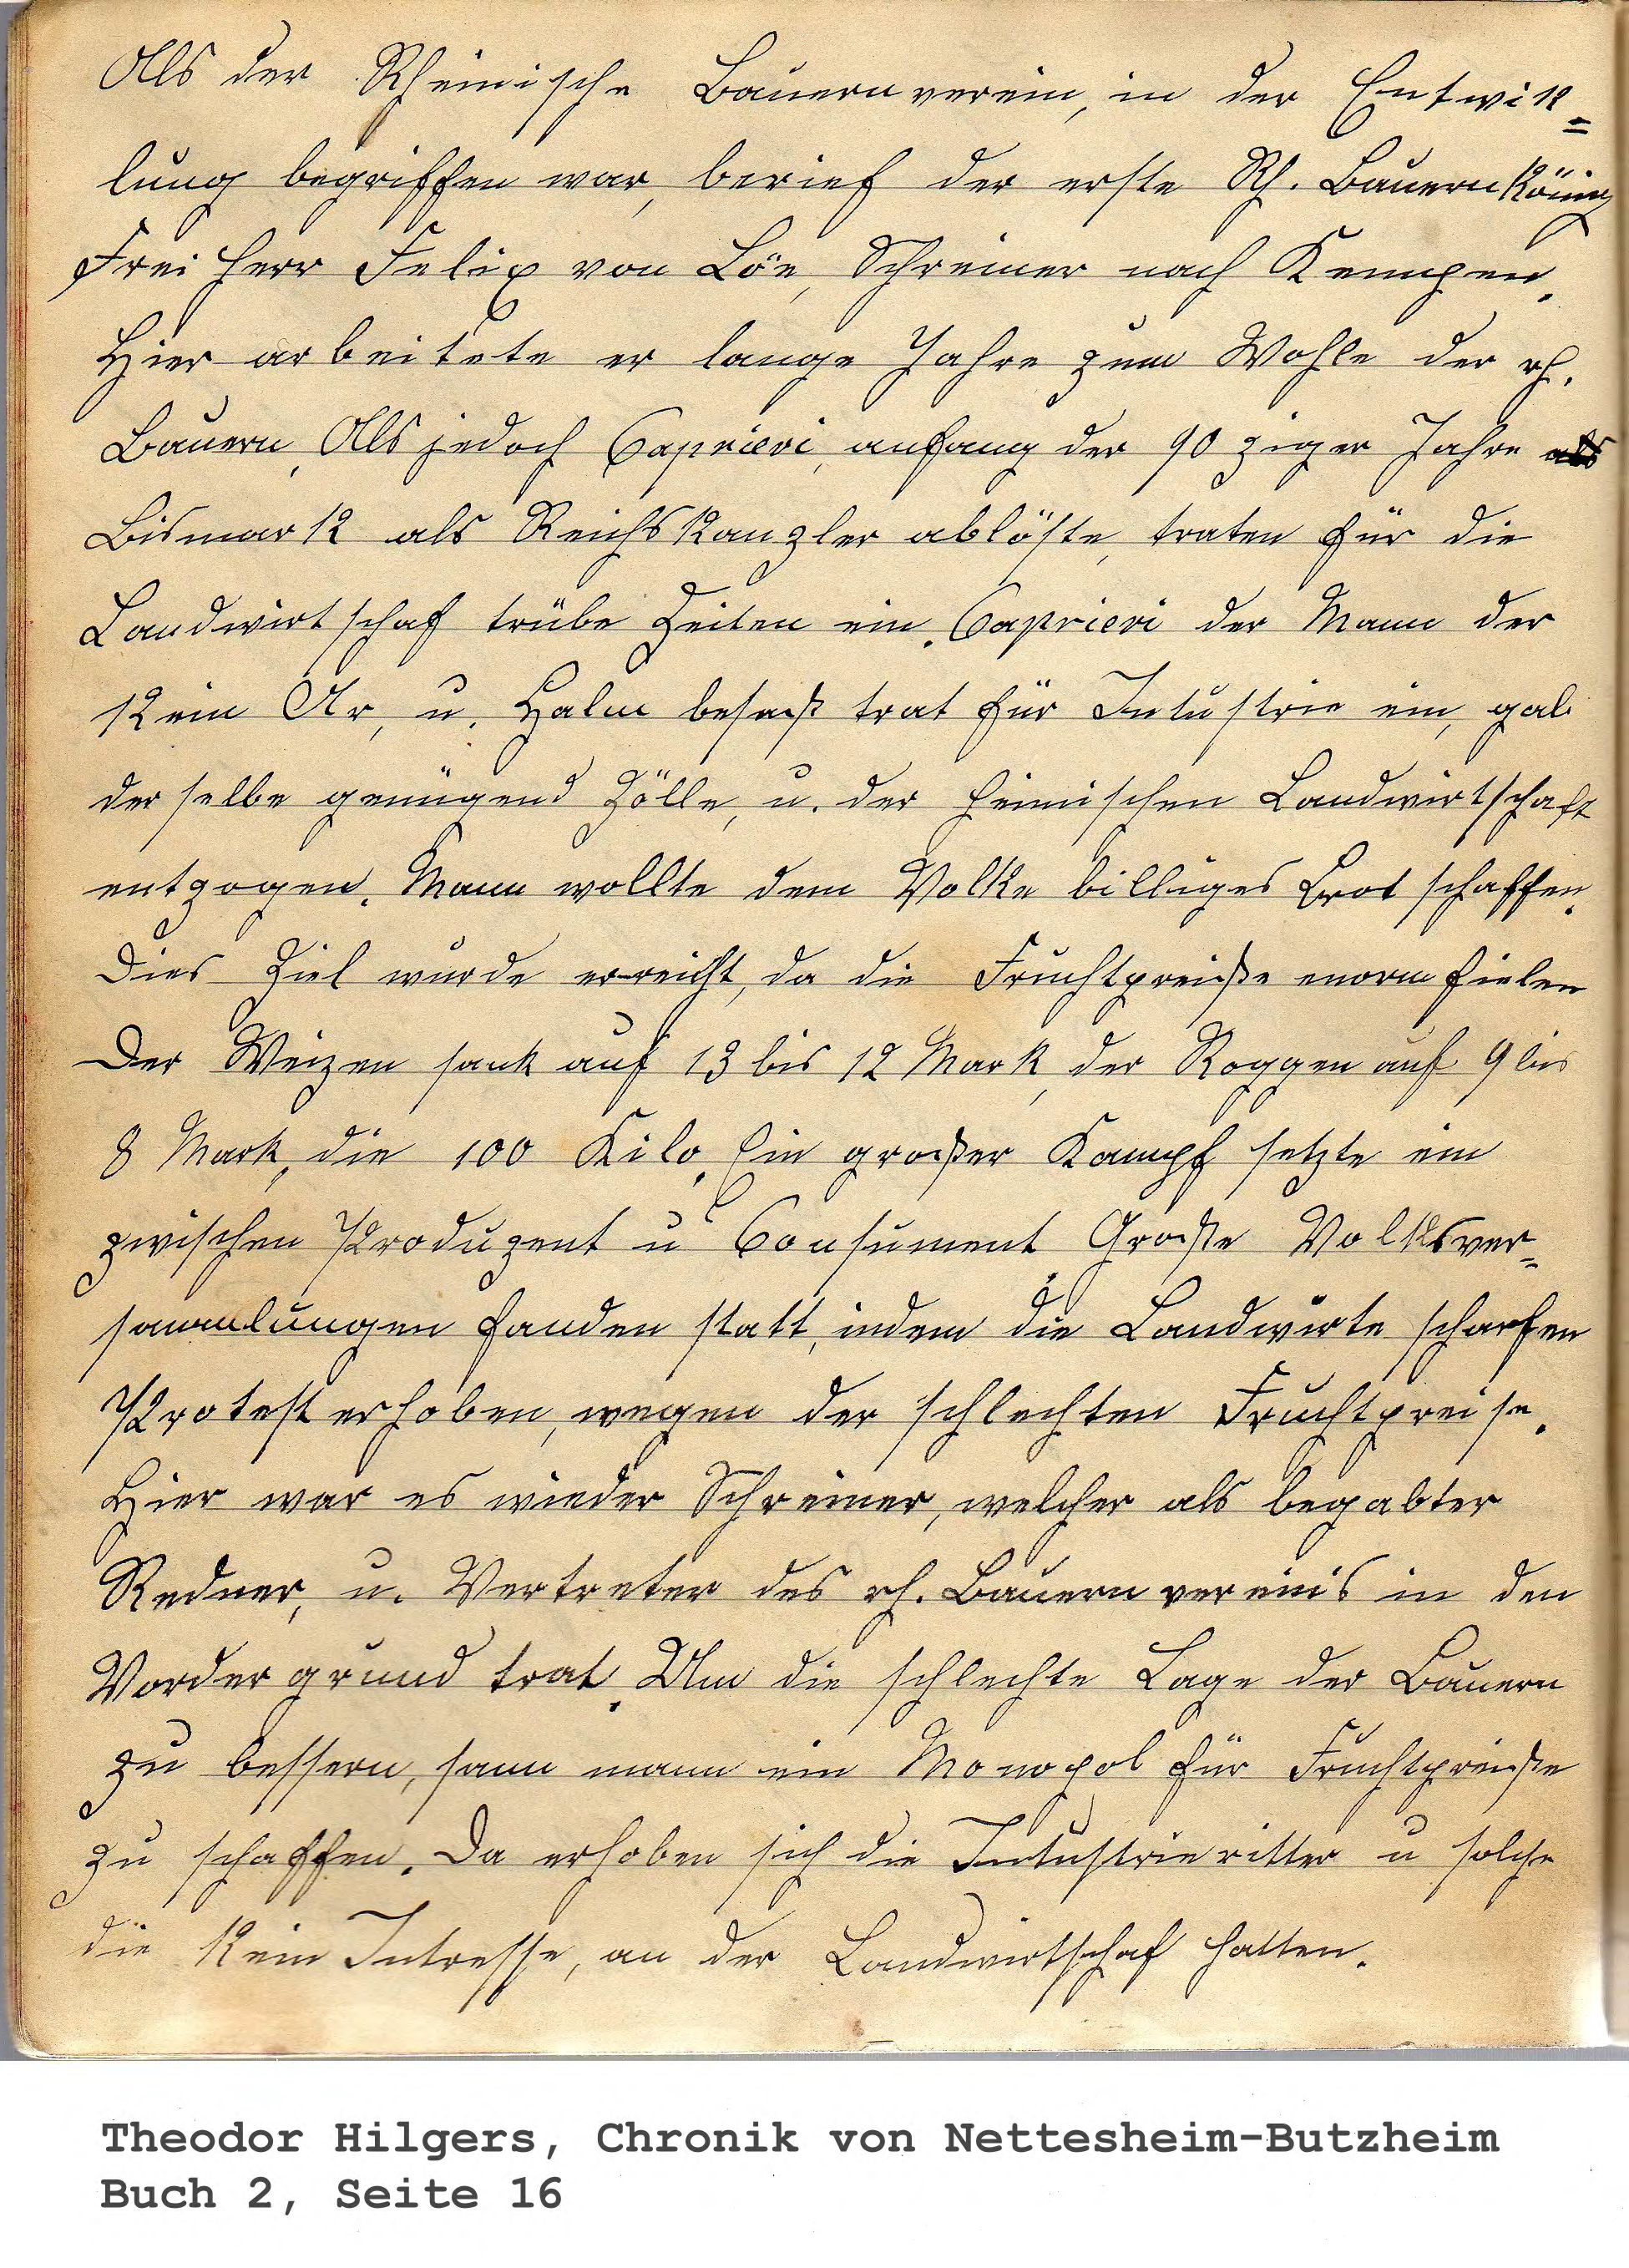 Als der Rheinische Bauernverein, in der Entwik=
lung begriffen war, berief der erste Rh. Bauernkönig
Freiherr Felix von Löe, Schreiner nach Kempen.
Hier arbeitete er lange Jahre zum Wohle der rh.
Bauern, Als jedoch Caprievi, anfang der 90 ziger Jahre
Bismark als Reichskanzler ablöste, traten für die
Landwirtschaf trübe Zeiten ein. Caprievi der Mann der
kein Ar, u. Halm besaß trat für Intustrie ein, gab
der selbe genügend Zölle, u. der heimischen Landwirtschaft
entzogen. Mann wollte dem Volke billiges Brot schaffen.
Dies Ziel wurde erreicht, da die Fruchtpreiße enorm fielen
Der Weizen sank auf 13 bis 12 Mark, der Roggen auf 9 bis
8 Mark, die 100 Kilo. Ein großer Kampf setzte ein
zwischen Produzent u Consument. Große Volksver=
sammlungen fanden statt, indem die Landwirte scharfen
Protest erhoben, wegen der schlechten Fruchtpreise.
Hier war es wieder Schreiner, welcher als begabter
Redner, u. Vertreter des rh. Bauernvereins in den
Vordergrund trat. Um die schlechte Lage der Bauern
zu bessern, sann mann ein Monopol für Fruchtpreiße
zu schaffen. Da erhoben sich die Intustrieritter u solche
die kein Intresse, an der Landwirtschaf hatten.
Theodor Hilgers, Chronik von Nettesheim-Butzheim
Buch 2, Seite 16